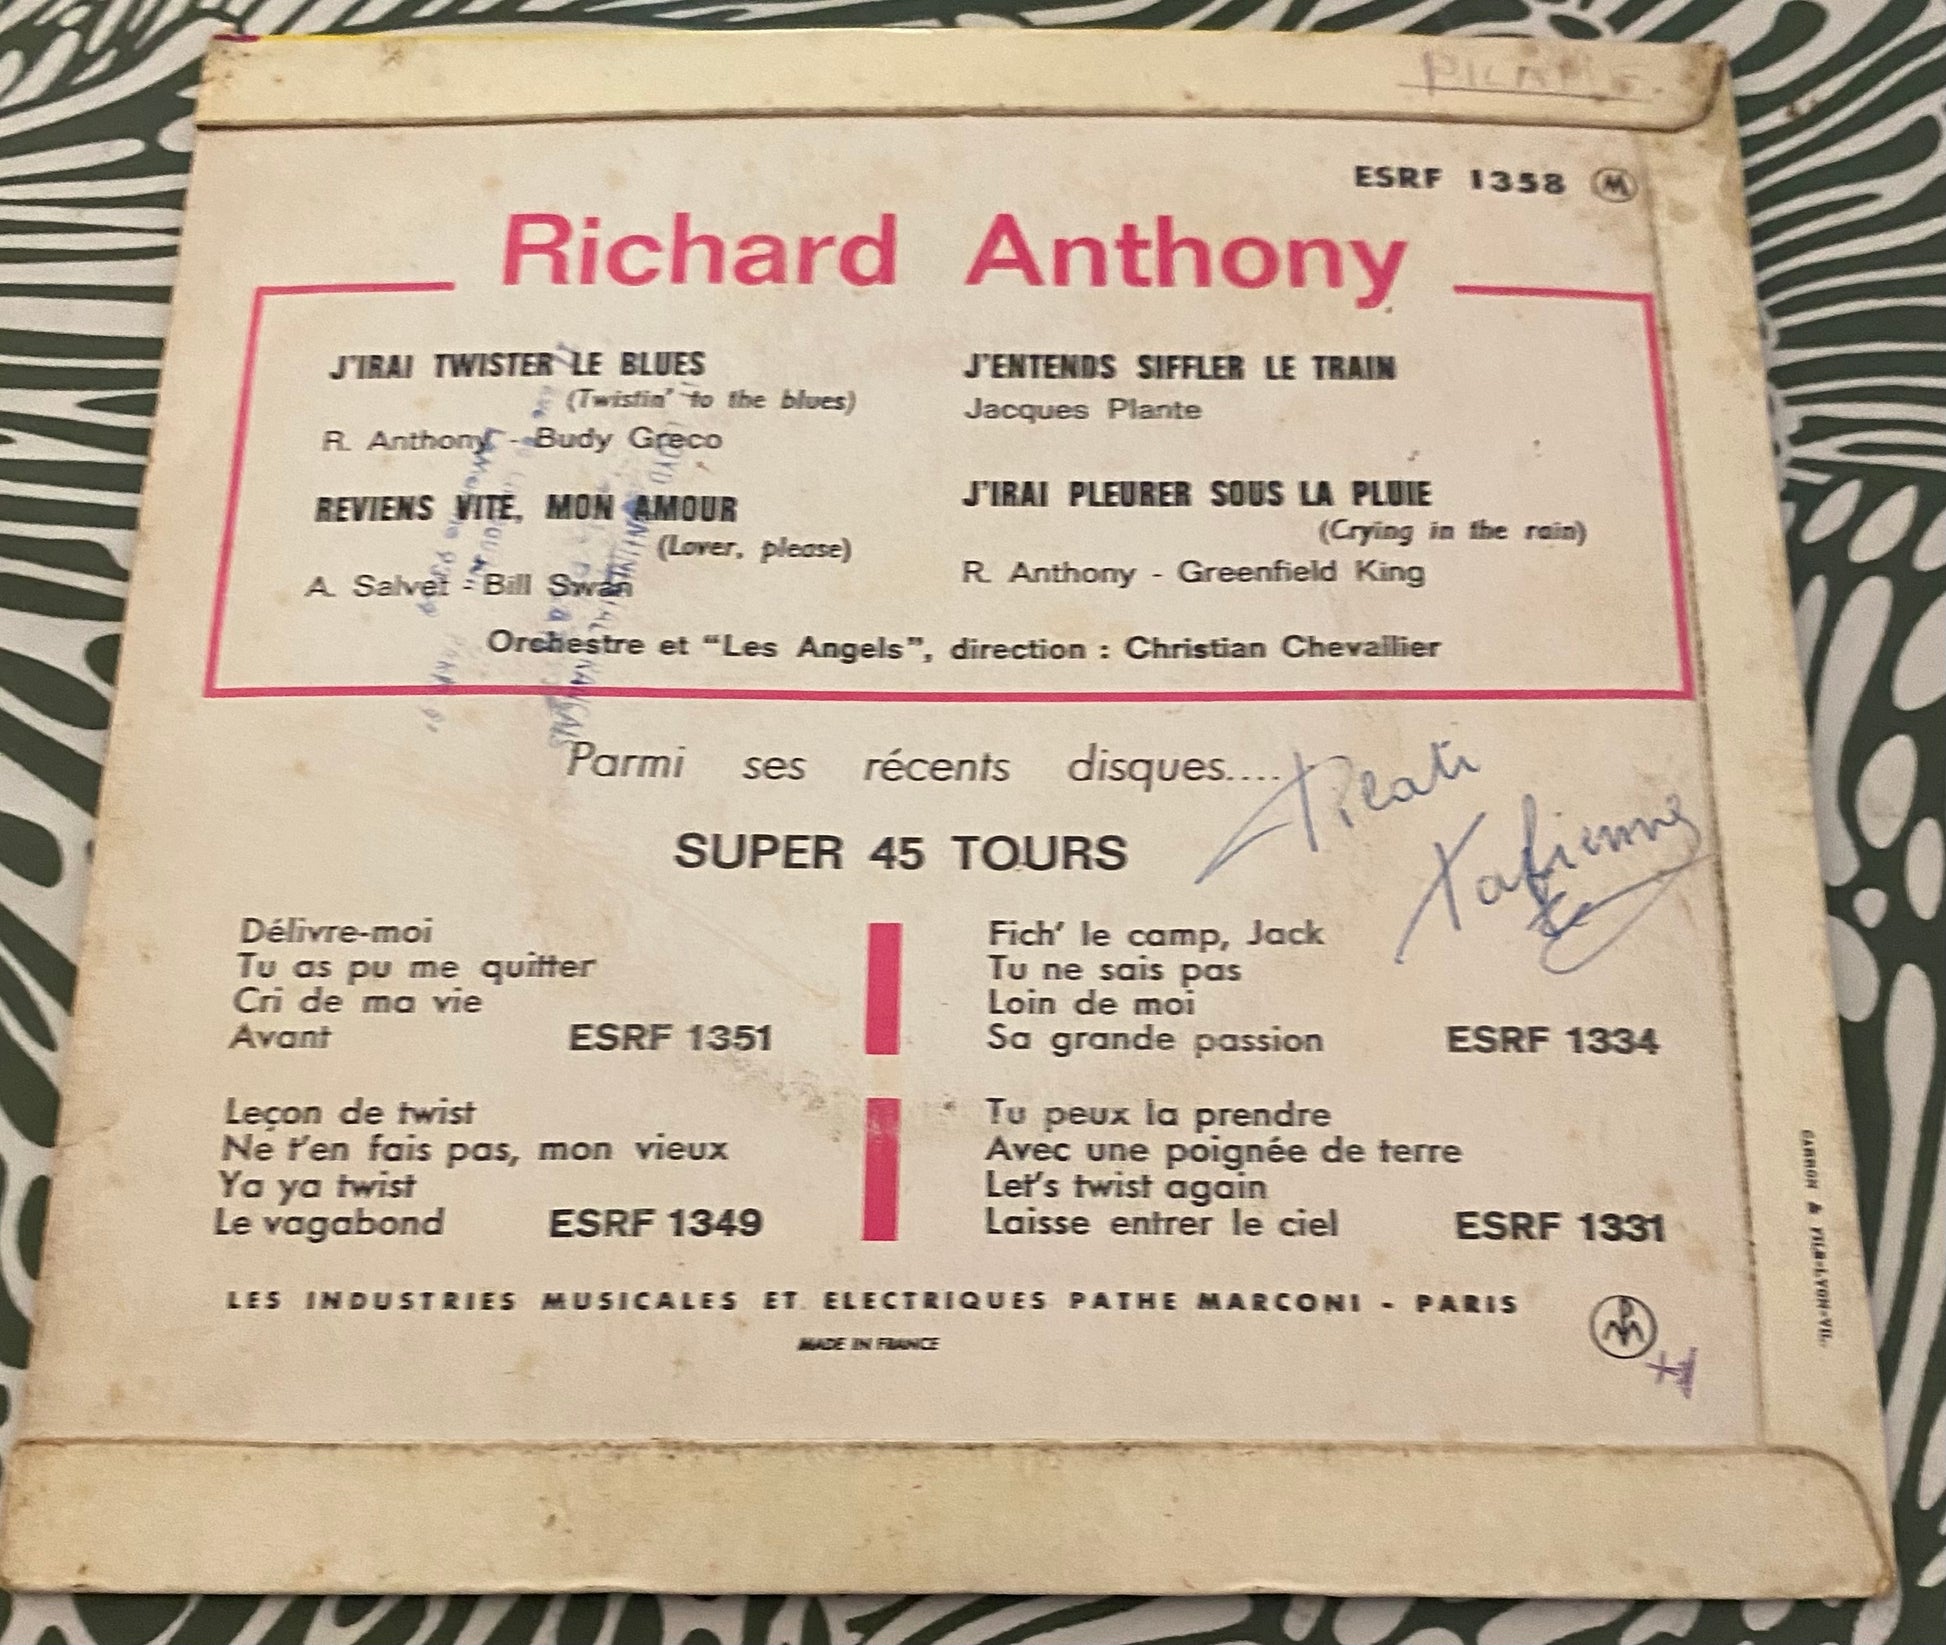 ESRF 1358 M
Richard Anthony
J'IRAI TWISTER LE BLUES
(Twistin' to the blues)
R. Anthony - Budy Greco
REVIENS VITE, MON AMOUR
(Lover, please)
A. Salvet - Bill Swan
J'ENTENDS SIFFLER LE TRAIN
Jacques Plante
J'IRAI PLEURER SOUS LA PLUIE
(Crying in the rain)
R. Anthony - Greenfield King
Orchestre et "Les Angels", direction : Christian Chevallier
Parmi ses récents disques....
Fabienne
SUPER 45 TOURS
Délivre-moi
Tu as pu me quitter
Cri de ma vie
Avant ESRF 1351
Fich' le camp, Jack
Tu ne sais pas
Loin de moi
Sa grande passion ESRF 1334
Leçon de twist
Ne t'en fais pas, mon vieux
Ya ya twist
Le vagabond ESRF 1349
Tu peux la prendre
Avec une poignée de terre
Let's twist again
Laisse entrer le ciel ESRF 1331
LES INDUSTRIES MUSICALES ET ELECTRIQUES PATHE MARCONI - PARIS
MADE IN FRANCE